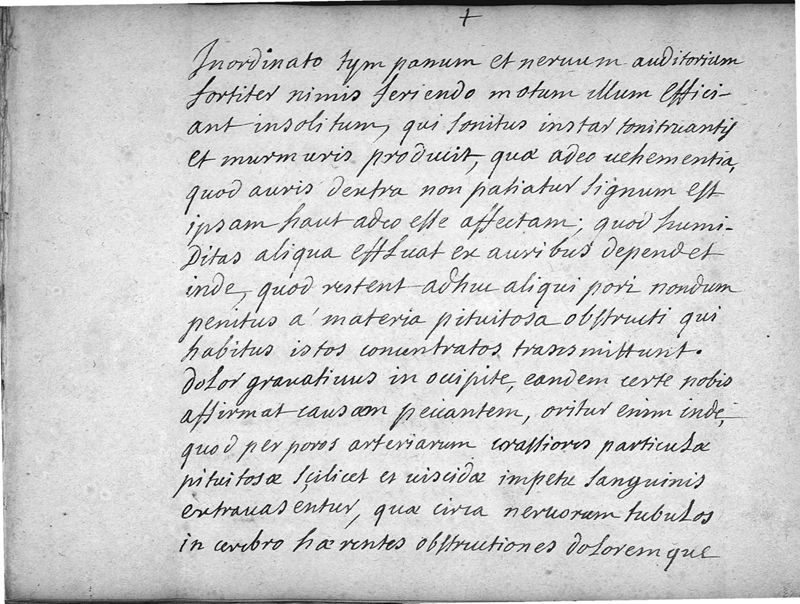 +
Inordinato tympanum et neruum auditorium
fortiter nimis feriendo motum illum effici-
ant insolitum, qui sonitus instar tonitruantis
et murmuris producit, quæ adeo uehementia,
quod auris dextra non patiatur signum est
ipsam haut adeo esse affectam; quod humi-
ditas aliqua effluat ex auribus dependet
inde, quod restent adhuc aliqui pori nondum
penitus a' materia pituitosa obstructi qui
habitus istos concentratos transmittunt.
dolor grauatiuus in occipite, eandem certe nobis
affirmat causam peccantem, oritur enim inde,
quod per poros arteriarum crassiores particulæ
pituitosæ scilicet et uiscidæ impetu sanguinis
extrauasentur, quæ circa neruorum tubulos
in cerebro hærentes obstructiones doloremque